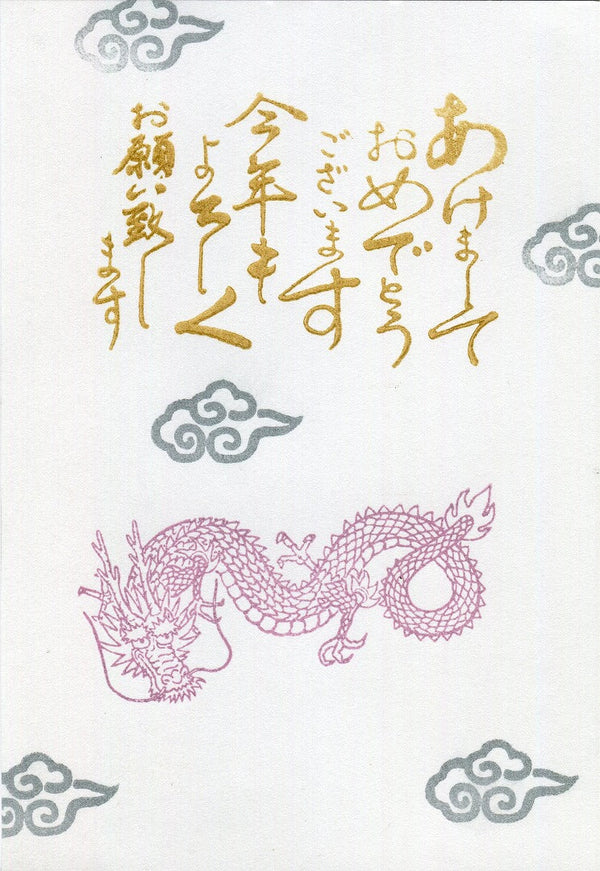 あけまして
おめでとう
ございます
今年も
よろしく
お願い致し
ます